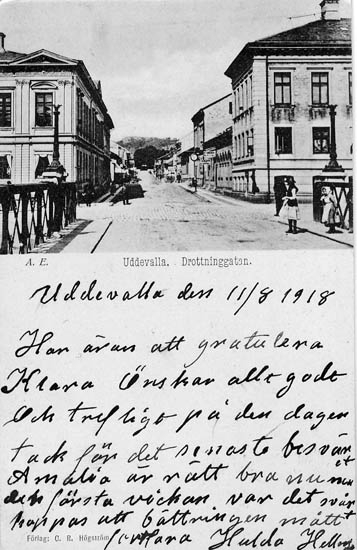 A. E. Uddevalla. Drottninggatan.
Uddevalla den 11/8 1918
Har äran att gratulera
Klara Önskar allt godt
Och trefligt på den dagen
tack för det senaste besvär
Amalia är rätt bra nu men
den första vickan var det svår
hoppas att bättringen måtte
Förlag: C. R. Högström
Hulda